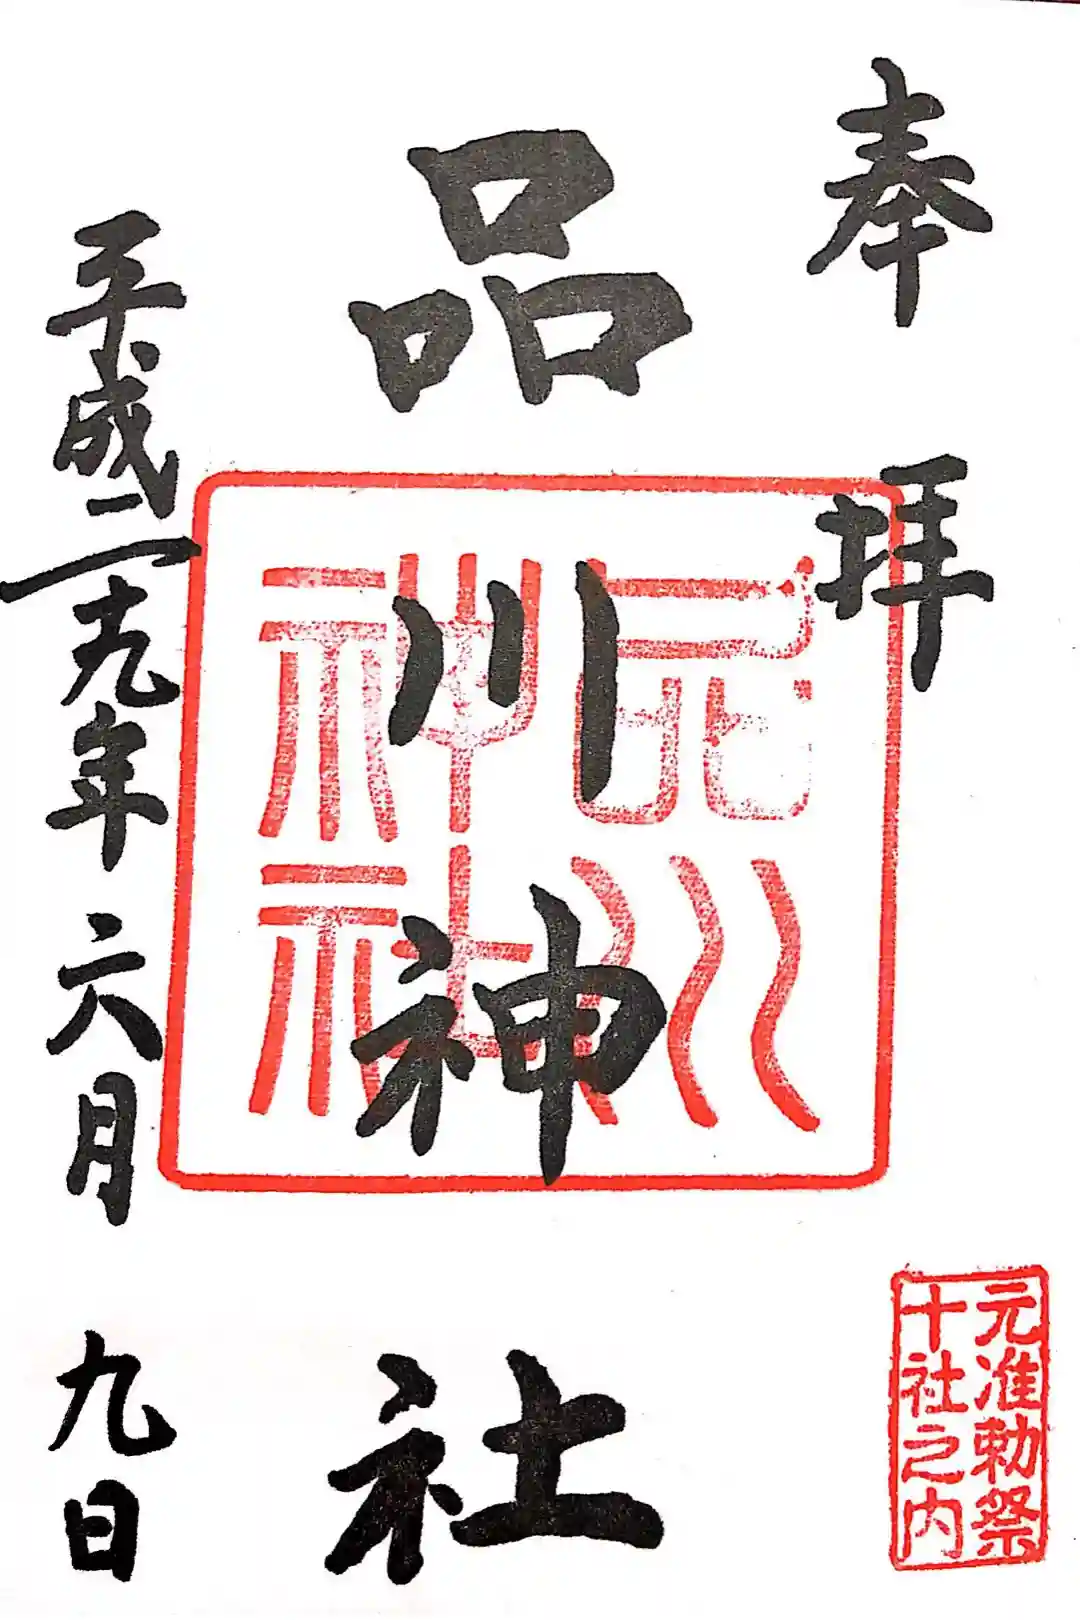 奉拝
品川神社
品川
神社
平成二十九年六月九日
元准勅祭
十社之内